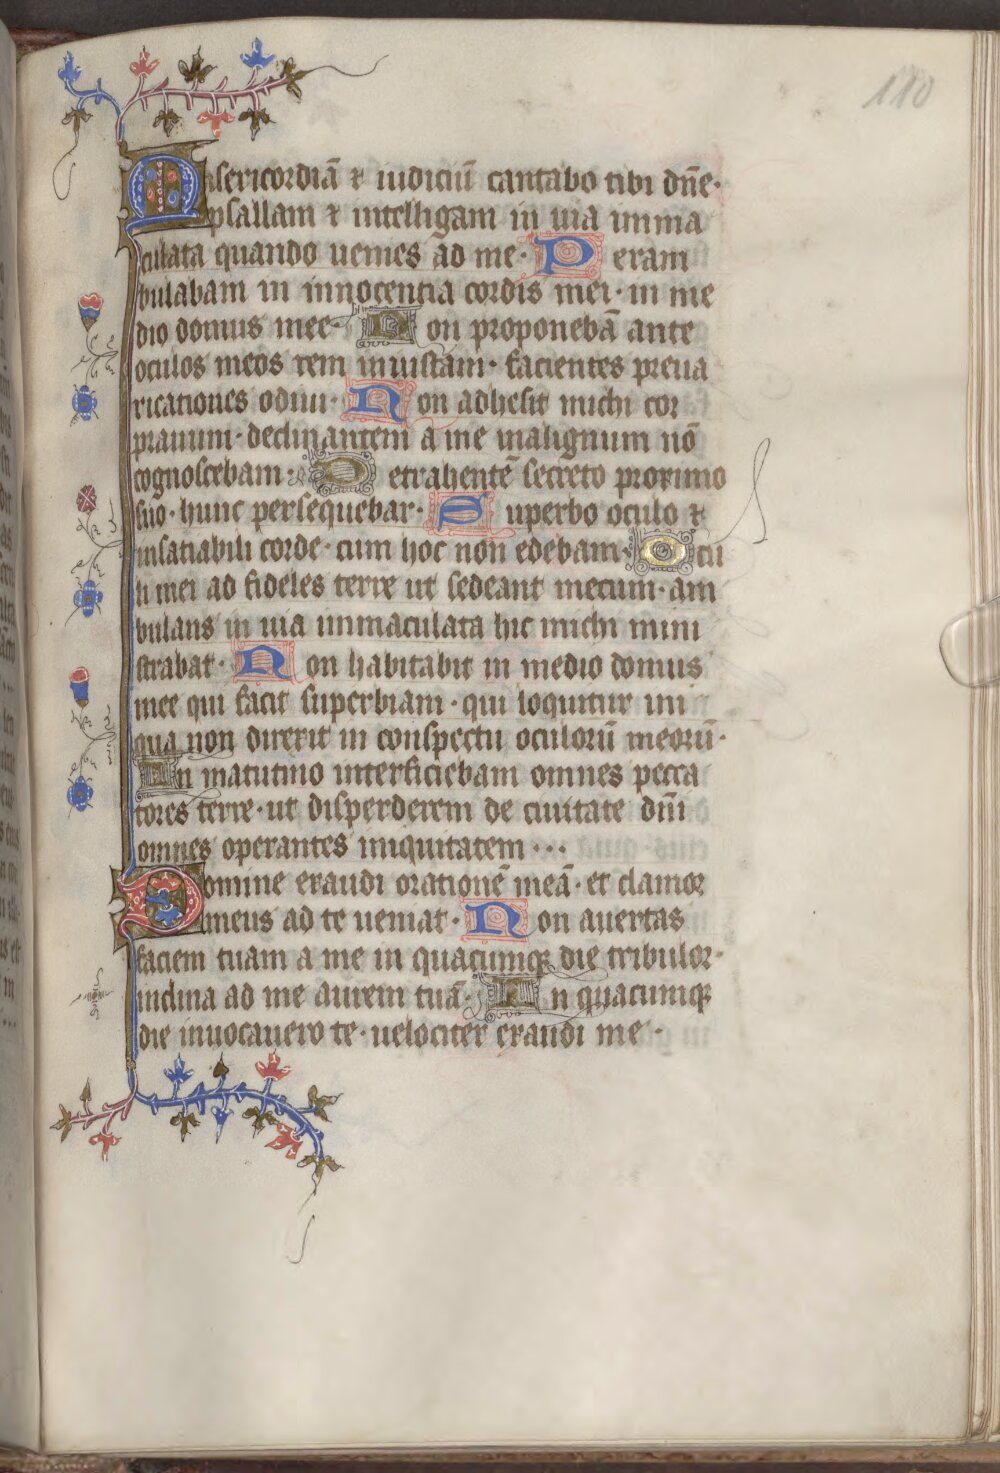 110
Misericordiā ⁊ iudiciū cantabo tibi dn̄e·
psallam ⁊ intelligam in uia imma
culata quando uenies ad me· Peram
bulabam in innocentia cordis mei· in me
dio domus mee· Non proponebā ante
oculos meos rem iniustam· facientes preua
ricationes odiui· Non adhesit michi cor
prauum· declinantem a me malignum nō
cognoscebam· Detrahentē secreto proximo
suo· hunc persequebar· Superbo oculo ⁊
insatiabili corde· cum hoc non edebam· Ocu
li mei ad fideles terre ut sedeant mecum· am
bulans in uia immaculata hic michi mini
strabat· Non habitabit in medio domus
mee qui facit superbiam· qui loquitur ini
qua non direxit in conspectu oculorū meorū·
In matutino interficiebam omnes pecca
tores terre· ut disperderem de ciuitate dn̄i
omnes operantes iniquitatem···
Domine exaudi orationē meā· et clamor
meus ad te ueniat· Non auertas
faciem tuam a me in quacumqꝫ die tribulor·
inclina ad me aurem tuā· In quacumqꝫ
die inuocauero te· uelociter exaudi me·